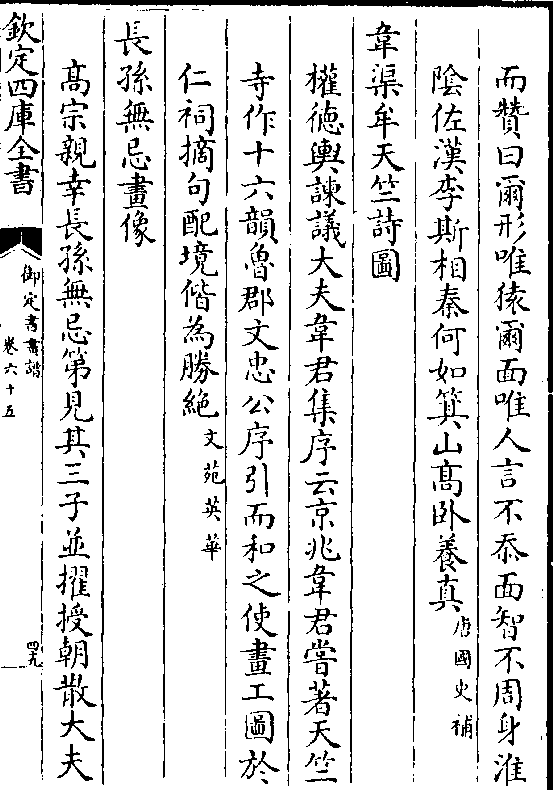 而贊曰爾形唯猿爾面唯人言不忝面智不周身淮
陰佐漢李斯相秦何如箕山髙卧養真唐國史補
韋渠牟天竺詩圖
權徳輿諫議大夫韋君集序云京兆韋君嘗著天竺
寺作十六韻魯郡文忠公序引而和之使畫工圖於
仁祠摘句配境偕為勝絶文苑英華
長孫無忌畫像
髙宗親幸長孫無忌第見其三子並擢授朝散大夫
欽定四庫全書
御定書畫譜
卷六十五
四九